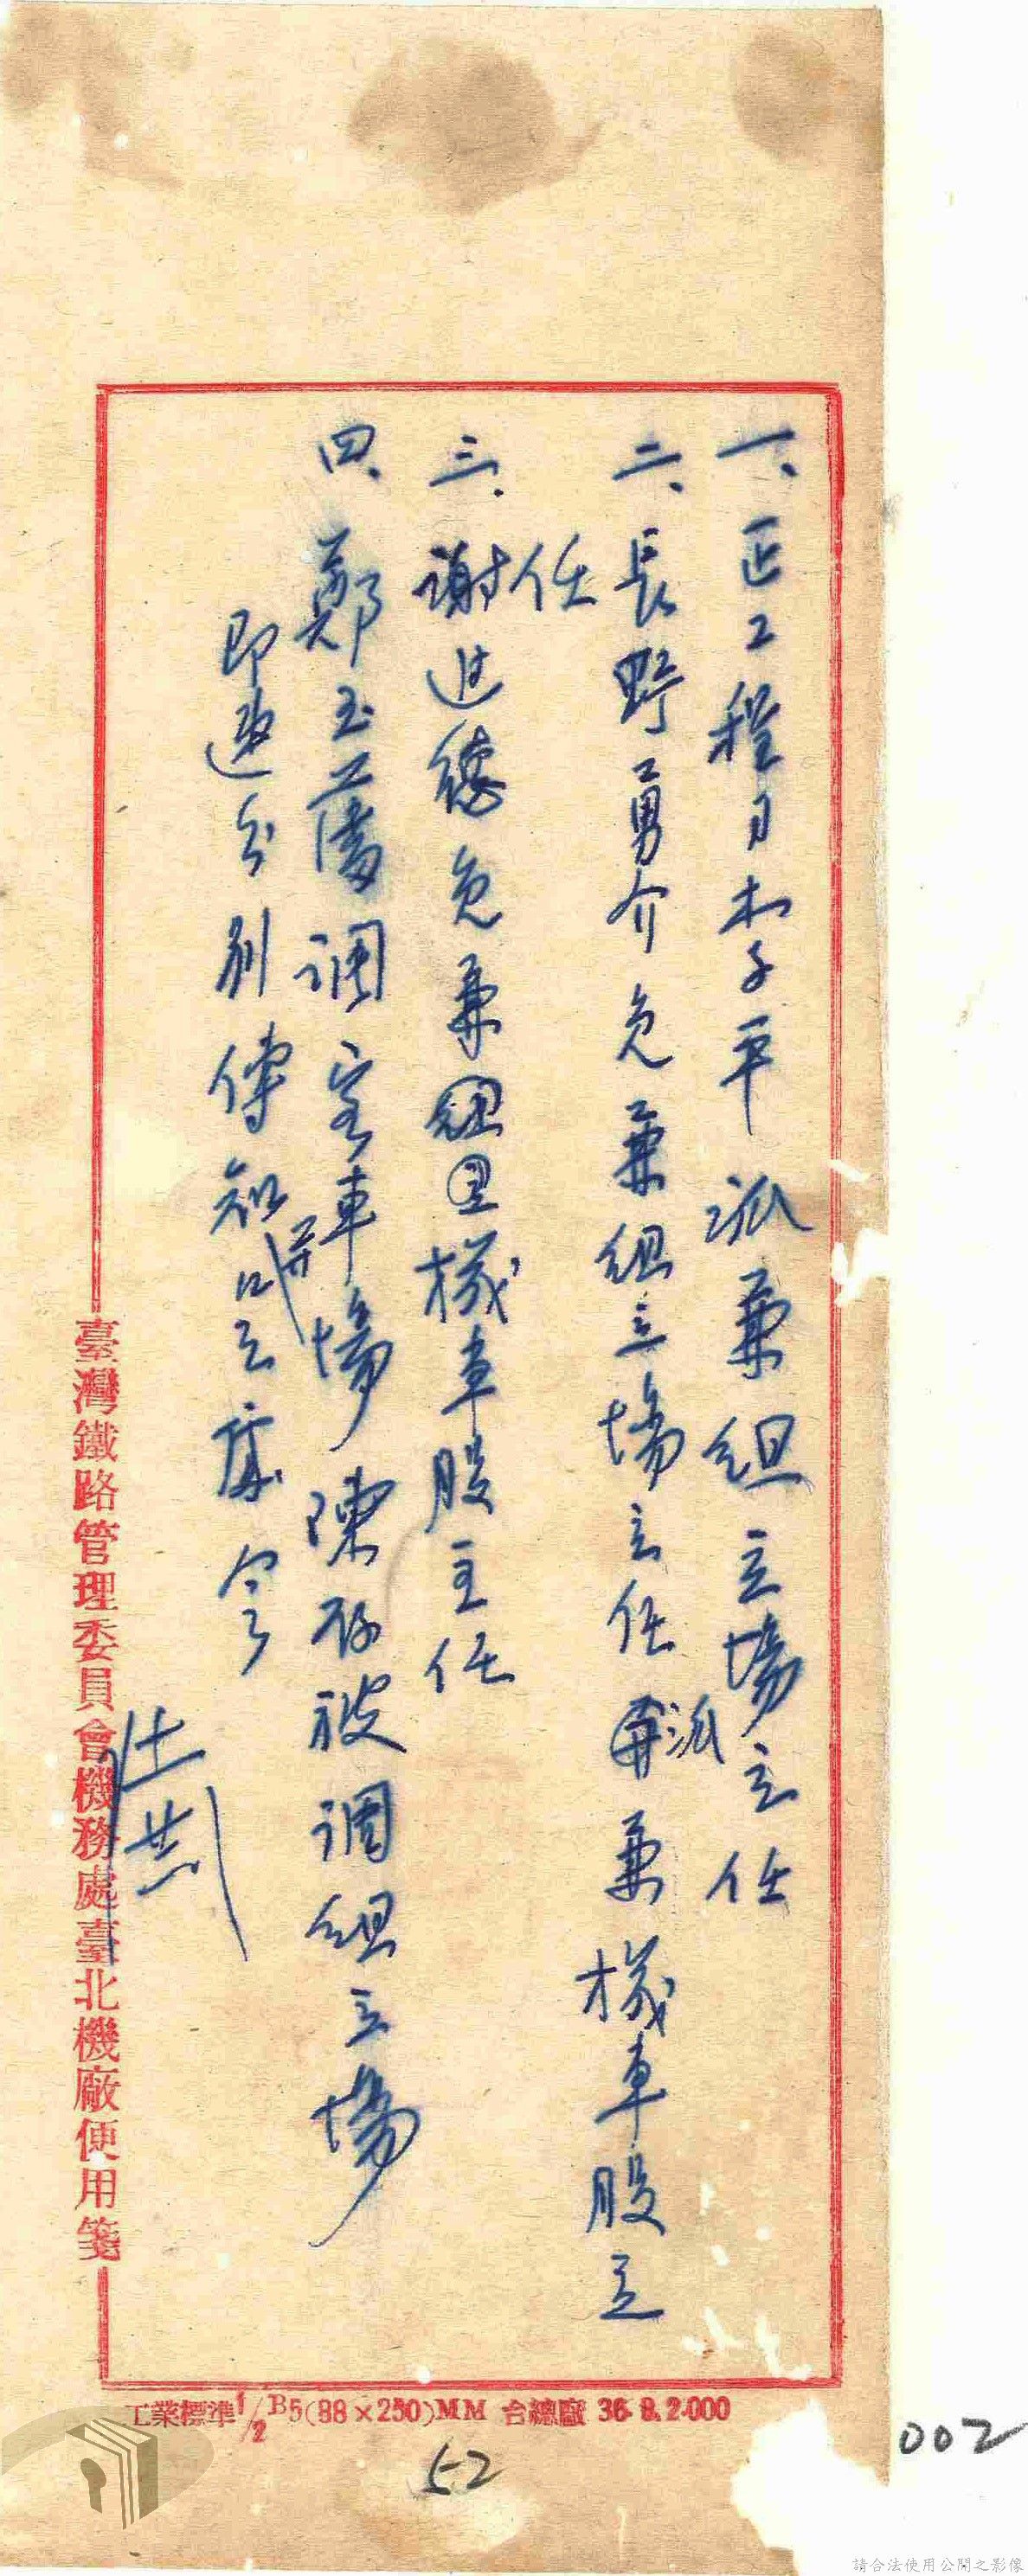 一、正工程司李子平派兼組立場主任
二、長野勇介免兼組立場主任派兼機車股主
任
三、謝進德免兼組立機車股主任
四、鄭玉藩調客車場陳存被調組立場
即速分別傳知并呈處令
臺灣鐵路管理委員會機務處臺北機廠便用箋
工業標準1/2 B5(88×250)MM 台總廠 36.8.2.000
52
002
請合法使用公開之影像